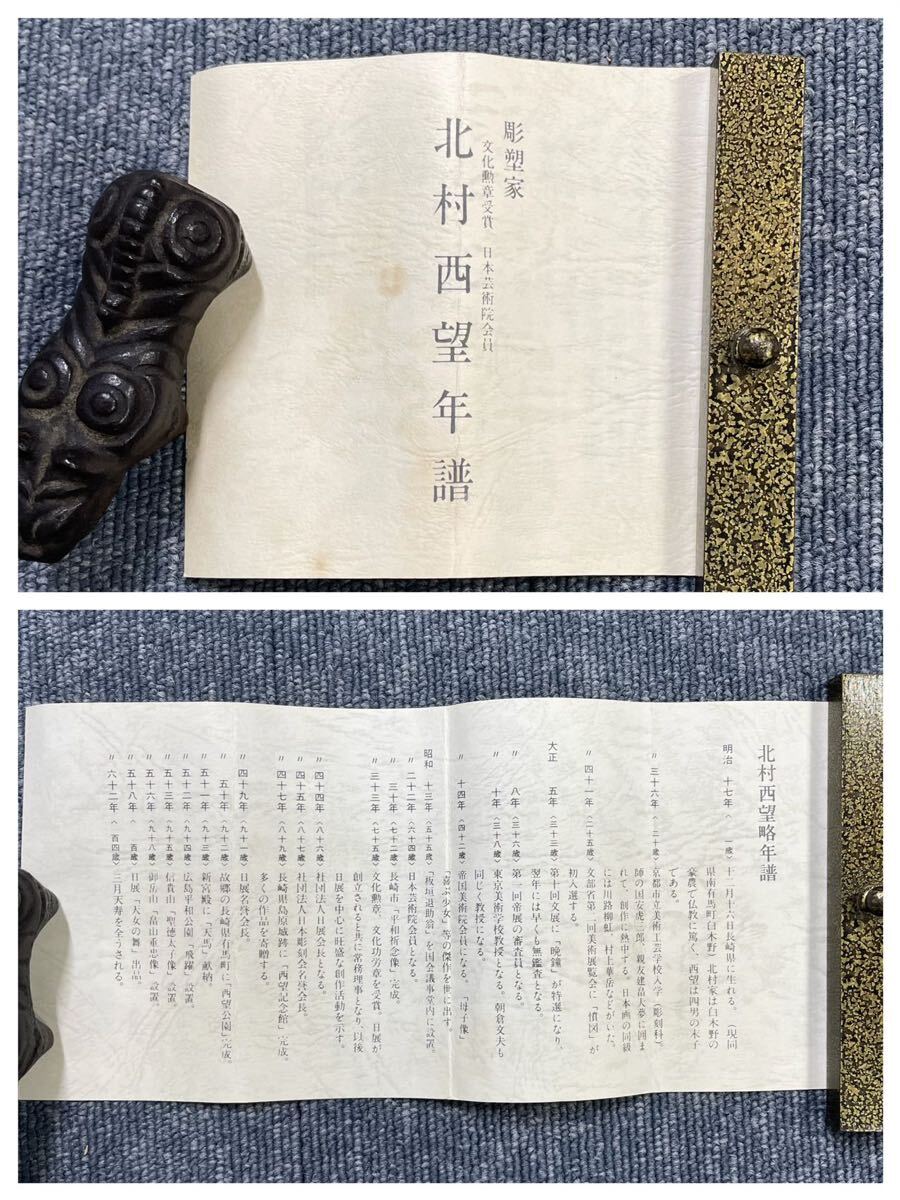 彫塑家
文化勲章受賞 日本芸術院会員
北村西望年譜
北村西望略年譜
明治 十七年( 一歳)十二月十六日長崎県に生れる。(現同
県南有馬町白木野)北村家は白木野の
豪農で仏教に篤く、西望は四男の末子
である。
〃 三十六年( 二十歳)京都市立美術工芸学校入学(彫刻科)。
師の国安虎三郎、親友建畠大夢に囲ま
れて、創作に熱中する。日本画の同級
には川路柳虹、村上華岳などがいた。
〃 四十一年(二十五歳)文部省第一回美術展覧会に「憤図」が
初入選する。
大正 五年(三十三歳)第十回文展に「晩鐘」が特選になり、
翌年には早くも無鑑査となる。
〃 八年(三十六歳)第一回帝展の審査員となる。
〃 十年(三十八歳)東京美術学校教授となる。朝倉文夫も
同じく教授になる。
〃 十四年(四十二歳)帝国美術院会員になる。「母子像」
「喜ぶ少女」等の傑作を世に出す。
昭和 十三年(五十五歳)「板垣退助翁」を国会議事堂内に設置。
〃 二十二年(六十四歳)日本芸術院会員となる。
〃 三十年(七十二歳)長崎市「平和祈念像」完成。
〃 三十三年(七十五歳)文化勲章、文化功労章を受賞。日展が
創立されると共に常務理事となり、以後
日展を中心に旺盛な創作活動を示す。
〃 四十四年(八十六歳)社団法人日展会長となる。
〃 四十五年(八十七歳)社団法人日本彫刻会名誉会長。
〃 四十七年(八十九歳)長崎県島原城跡に「西望記念館」完成。
多くの作品を寄贈する。
〃 四十九年(九十一歳)日展名誉会長。
〃 五十年(九十二歳)故郷の長崎県有馬町に「西望公園」完成。
〃 五十一年(九十三歳)新宮殿に「天馬」献納。
〃 五十二年(九十四歳)広島平和公園「飛躍」設置
〃 五十三年(九十五歳)信貴山「聖徳太子像」設置
〃 五十六年(九十八歳)御岳山「畠山重忠像」設置
〃 五十八年( 百歳)日展「天女の舞」出品。
〃 六十二年( 百四歳)三月天寿を全うされる。